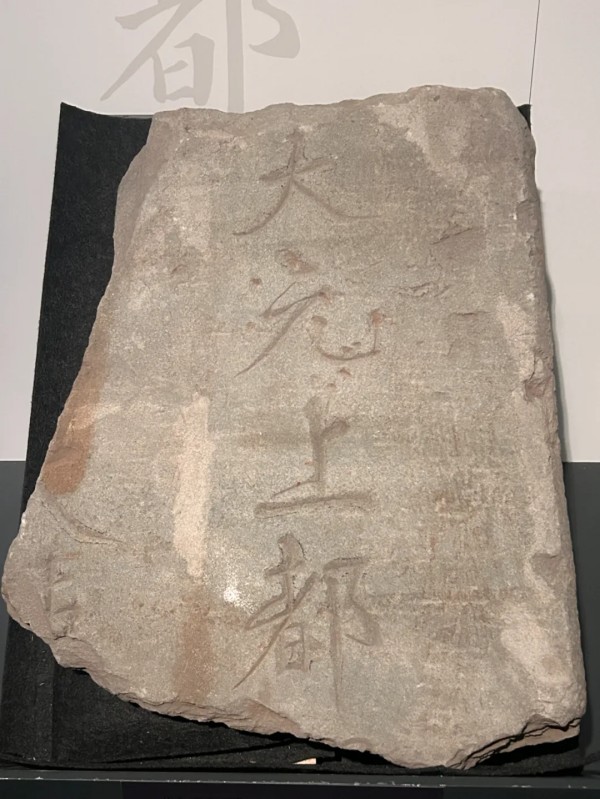 都
大元上都